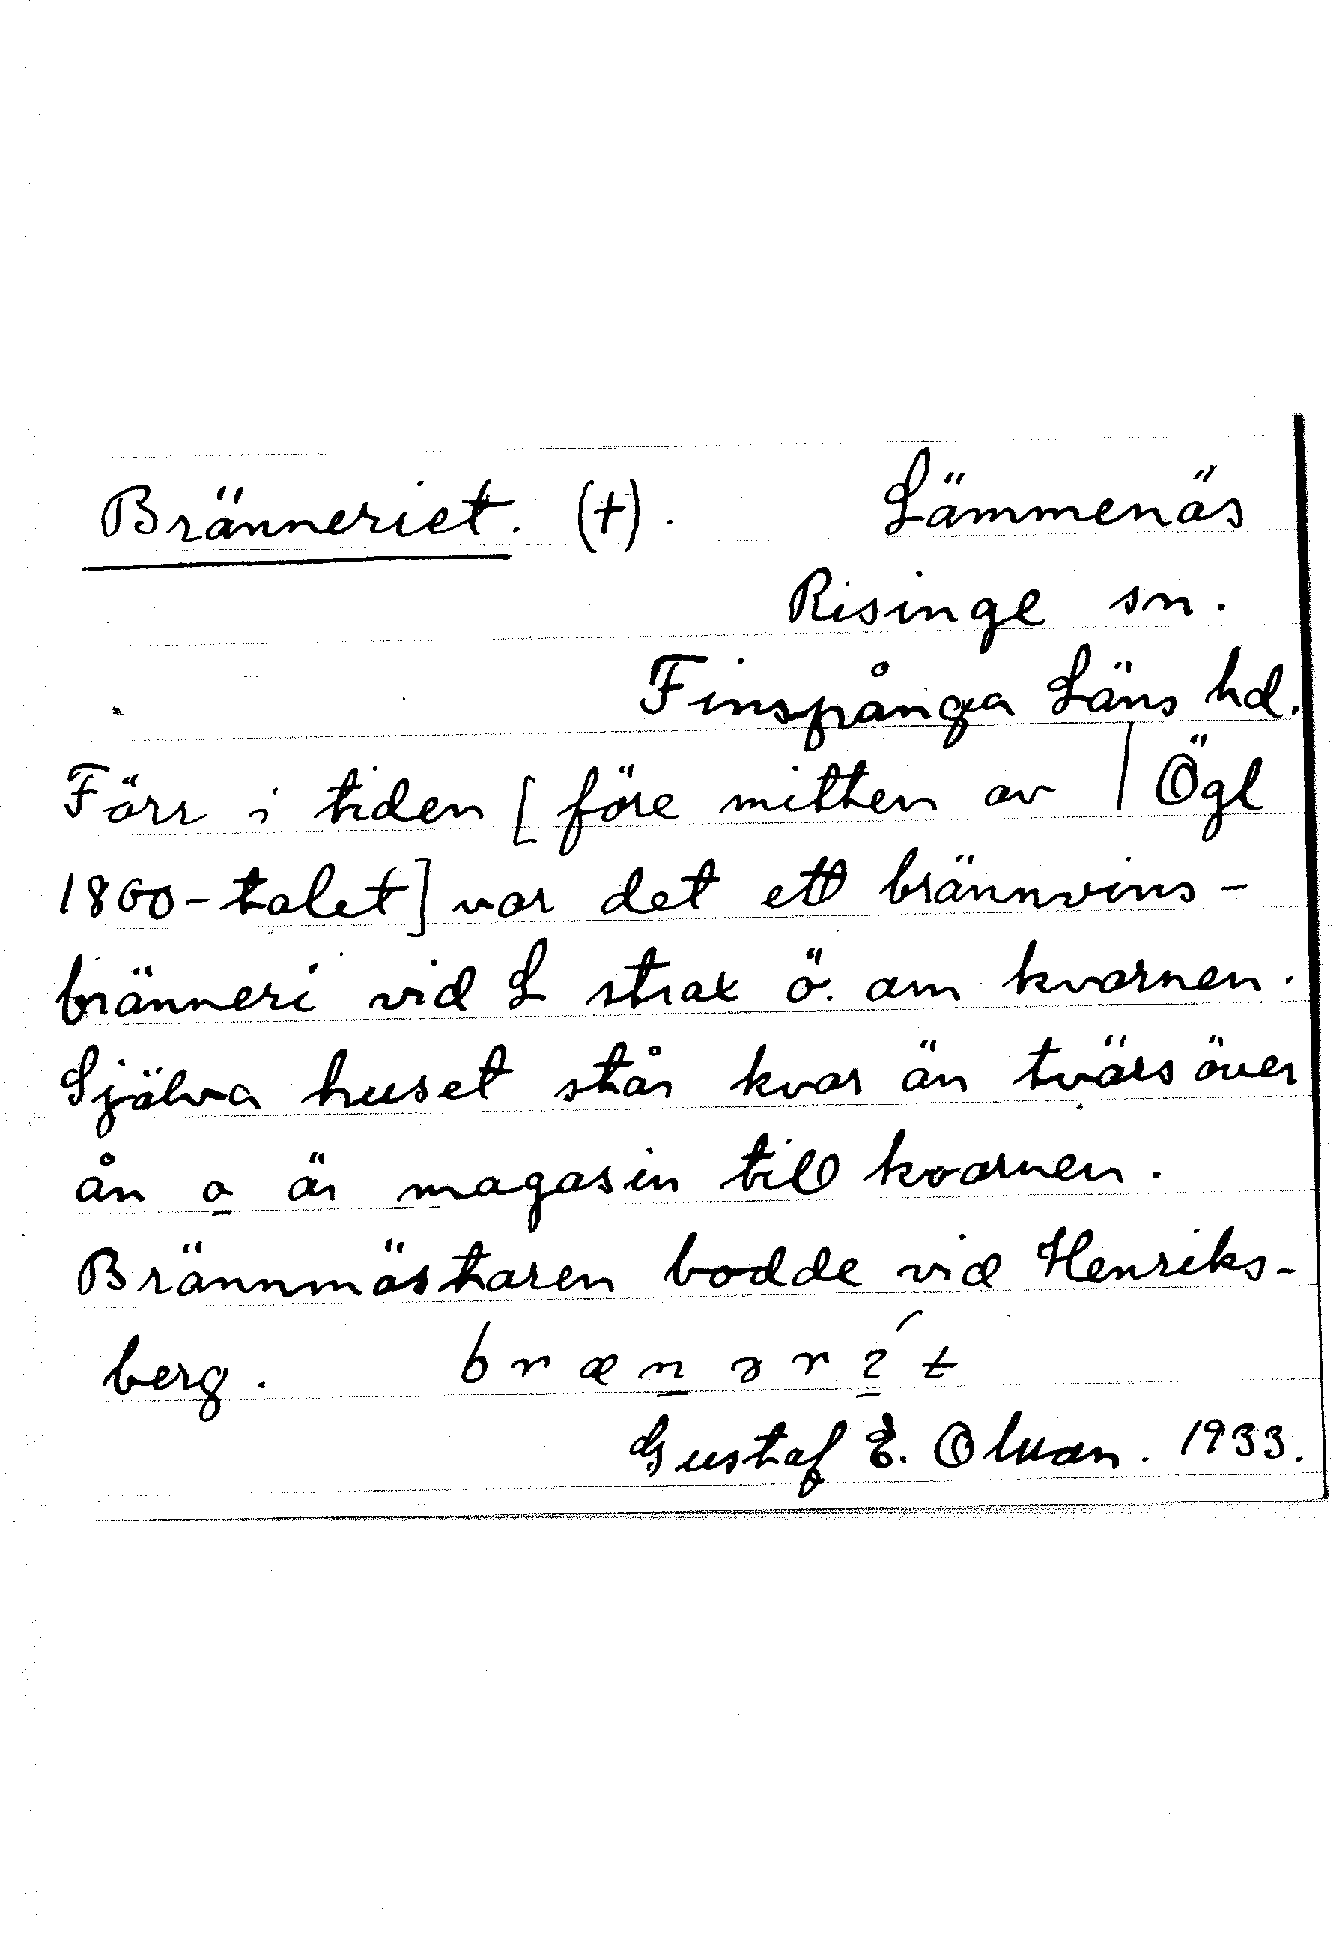 Bränneriet. (+). Lämmenäs
Risinge sn.
Finspånga Läns hd.
Förr i tiden [före mitten av | Ögl
1800-talet] var det ett brännvins-
bränneri vid L strax ö. om kvarnen.
Själva huset står kvar än tvärs över
ån o är magasin till kvarnen.
Brännmästaren bodde vid Henriks-
berg. brænərít
Gustaf E. 1933.